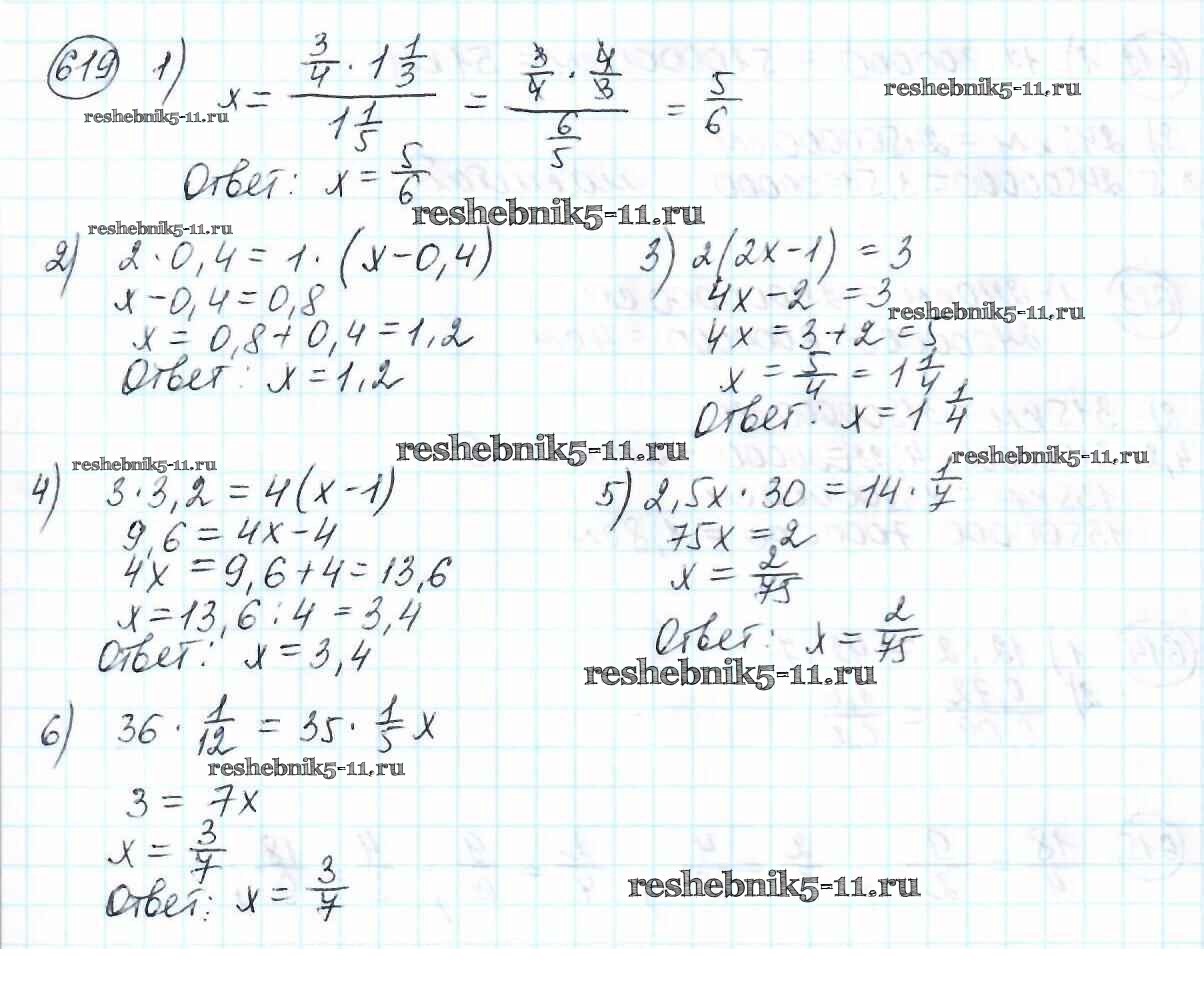 619 1) x = (3/4 · 1 1/3) / (1 1/5) = (3/4 · 4/3) / (6/5) = 5/6
reshebnik5-11.ru
reshebnik5-11.ru
Ответ: x = 5/6
reshebnik5-11.ru
reshebnik5-11.ru
2) 2 · 0,4 = 1 · (x – 0,4)
x – 0,4 = 0,8
x = 0,8 + 0,4 = 1,2
Ответ: x = 1,2
3) 2(2x – 1) = 3
4x – 2 = 3
reshebnik5-11.ru
4x = 3 + 2 = 5
x = 5/4 = 1 1/4
Ответ: x = 1 1/4
reshebnik5-11.ru
reshebnik5-11.ru
reshebnik5-11.ru
4) 3 · 3,2 = 4(x – 1)
9,6 = 4x – 4
4x = 9,6 + 4 = 13,6
x = 13,6 : 4 = 3,4
Ответ: x = 3,4
5) 2,5x · 30 = 14 · 1/7
75x = 2
x = 2/75
Ответ: x = 2/75
reshebnik5-11.ru
6) 36 · 1/12 = 35 · 1/5 x
reshebnik5-11.ru
3 = 7x
x = 3/7
Ответ: x = 3/7
reshebnik5-11.ru